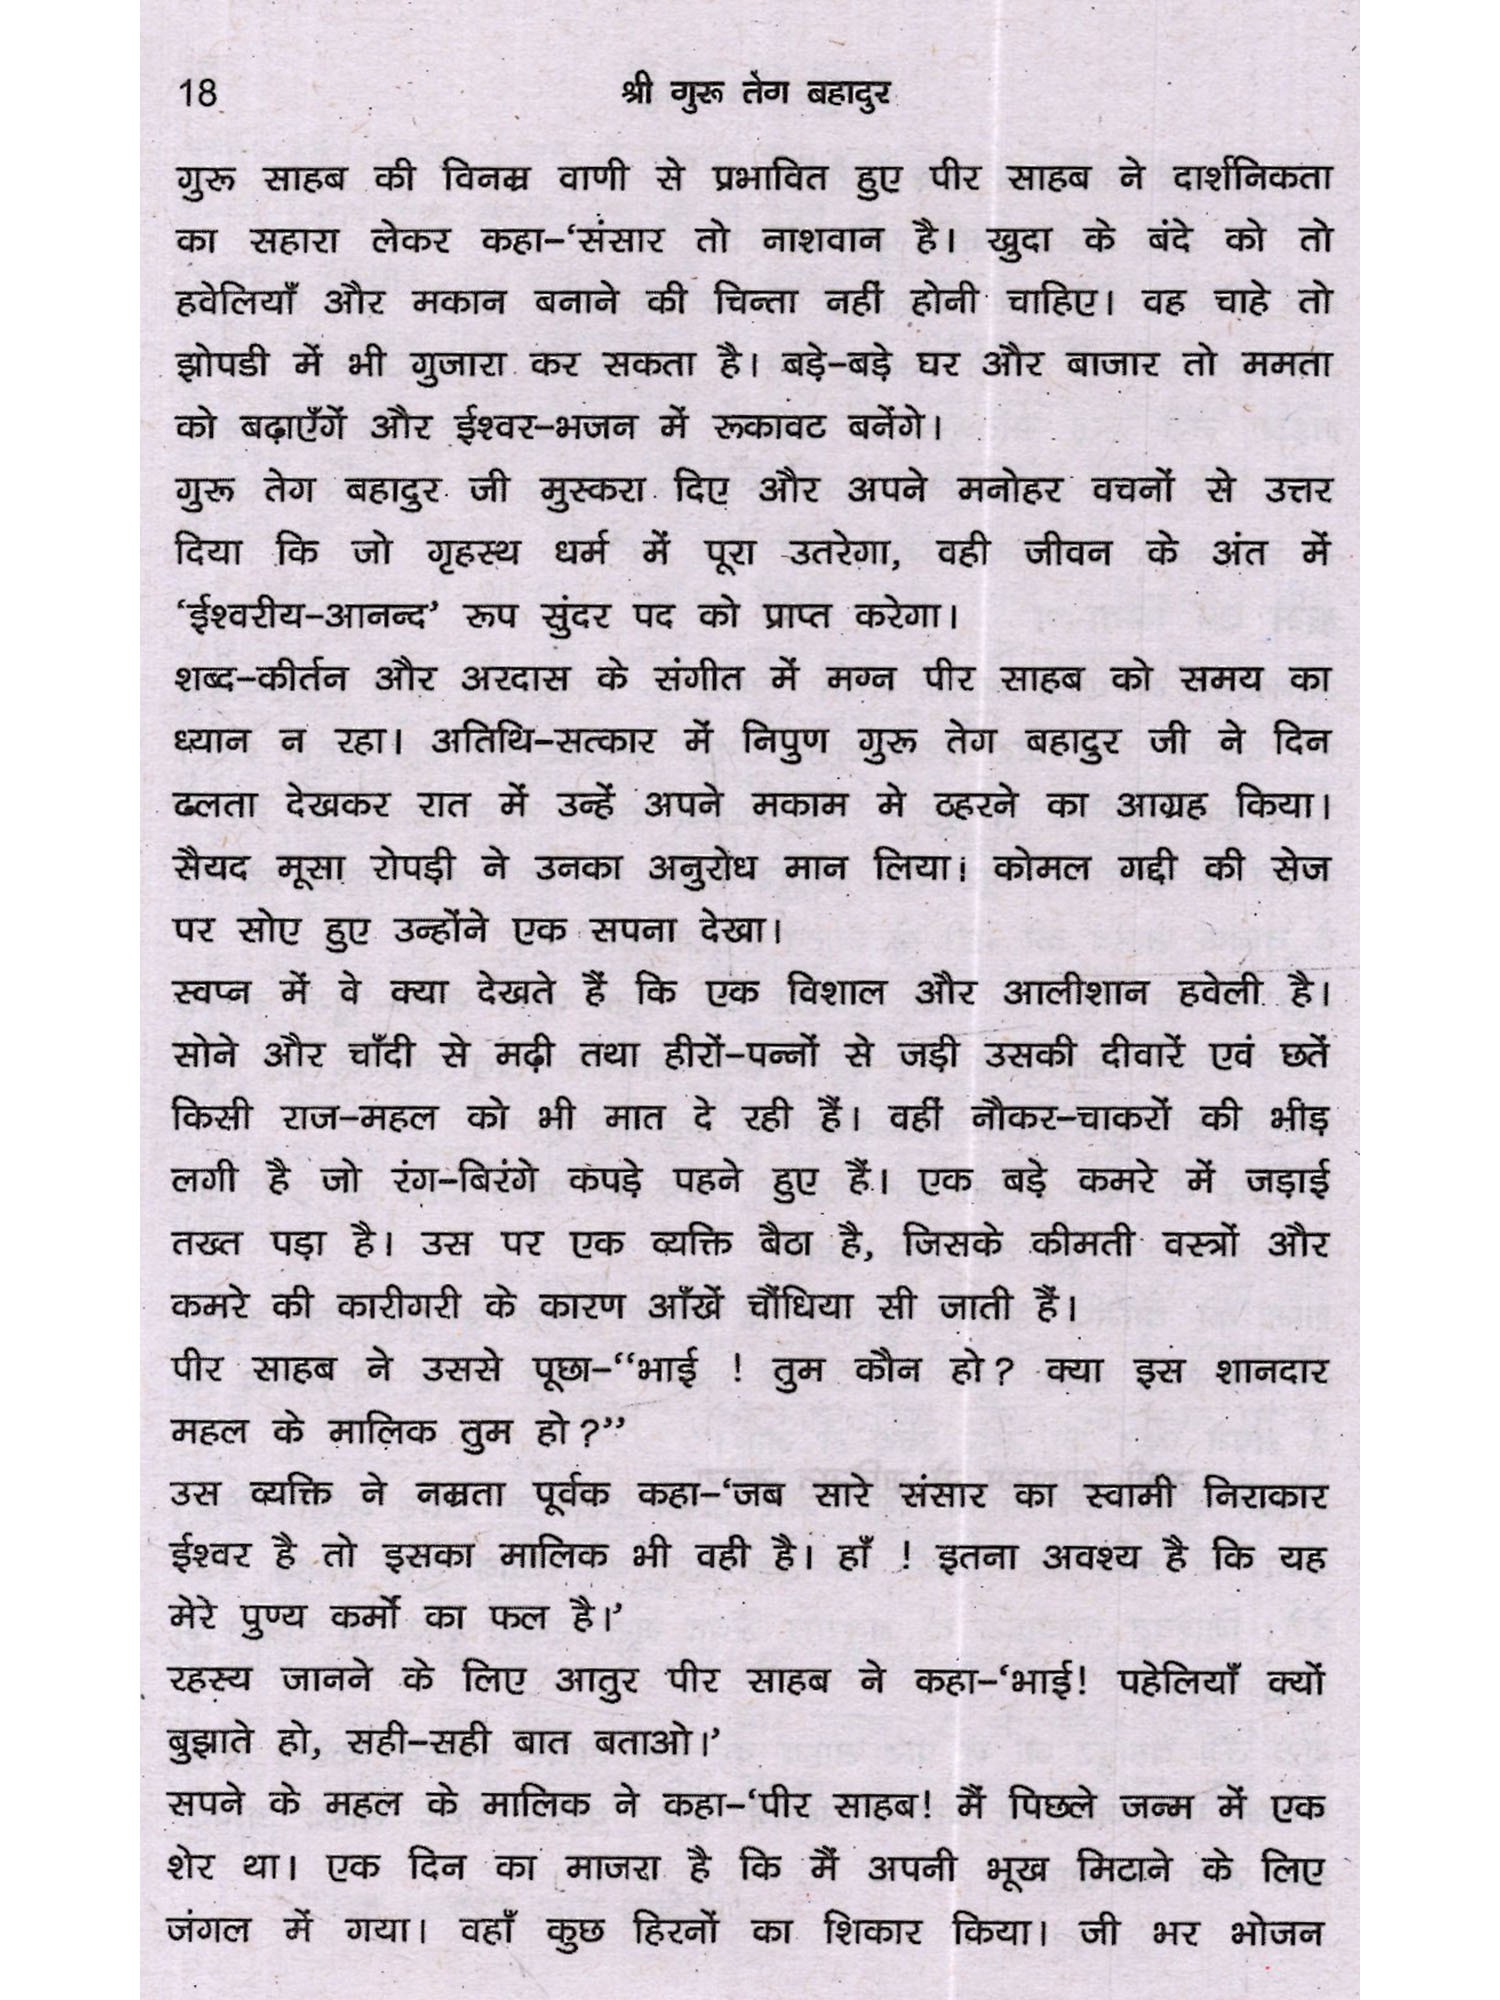 18
श्री गुरू तेग बहादुर
गुरू साहब की विनम्र वाणी से प्रभावित हुए पीर साहब ने दार्शनिकता
का सहारा लेकर कहा–‘संसार तो नाशवान है। खुदा के बंदे को तो
हवेलियाँ और मकान बनाने की चिन्ता नहीं होनी चाहिए। वह चाहे तो
झोपडी में भी गुजारा कर सकता है। बड़े–बड़े घर और बाजार तो ममता
को बढ़ाएँगें और ईश्वर–भजन में रूकावट बनेंगे।
गुरू तेग बहादुर जी मुस्करा दिए और अपने मनोहर वचनों से उत्तर
दिया कि जो गृहस्थ धर्म में पूरा उतरेगा, वही जीवन के अंत में
‘ईश्वरीय–आनन्द’ रूप सुंदर पद को प्राप्त करेगा।
शब्द–कीर्तन और अरदास के संगीत में मग्न पीर साहब को समय का
ध्यान न रहा। अतिथि–सत्कार में निपुण गुरू तेग बहादुर जी ने दिन
ढलता देखकर रात में उन्हें अपने मकाम मे ठहरने का आग्रह किया।
सैयद मूसा रोपड़ी ने उनका अनुरोध मान लिया। कोमल गद्दी की सेज
पर सोए हुए उन्होंने एक सपना देखा।
स्वप्न में वे क्या देखते हैं कि एक विशाल और आलीशान हवेली है।
सोने और चाँदी से मढ़ी तथा हीरों–पन्नों से जड़ी उसकी दीवारें एवं छतें
किसी राज–महल को भी मात दे रही हैं। वहीं नौकर–चाकरों की भीड़
लगी है जो रंग–बिरंगे कपड़े पहने हुए हैं। एक बड़े कमरे में जड़ाई
तख्त पड़ा है। उस पर एक व्यक्ति बैठा है, जिसके कीमती वस्त्रों और
कमरे की कारीगरी के कारण आँखें चौंधिया सी जाती हैं।
पीर साहब ने उससे पूछा–“भाई ! तुम कौन हो? क्या इस शानदार
महल के मालिक तुम हो?”
उस व्यक्ति ने नम्रता पूर्वक कहा–‘जब सारे संसार का स्वामी निराकार
ईश्वर है तो इसका मालिक भी वही है। हाँ ! इतना अवश्य है कि यह
मेरे पुण्य कर्मों का फल है।’
रहस्य जानने के लिए आतुर पीर साहब ने कहा–‘भाई! पहेलियाँ क्यों
बुझाते हो, सही–सही बात बताओ।’
सपने के महल के मालिक ने कहा–‘पीर साहब! मैं पिछले जन्म में एक
शेर था। एक दिन का माजरा है कि मैं अपनी भूख मिटाने के लिए
जंगल में गया। वहाँ कुछ हिरनों का शिकार किया। जी भर भोजन